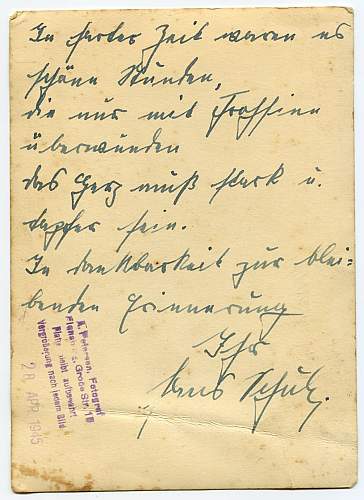 In harter Zeit waren es
schöne Stunden,
die nur mit Frohsinn
überwunden
das Herz muß stark u.
tapfer sein.
In Dankbarkeit zur blei=
benden Erinnerung
Ihr
Hans Schulz.
A. Petersen, Fotograf
Flensburg, Große Str. 16
Platte bleibt aufbewahrt
Vergrößerung nach jedem Bild
28. APR. 1945